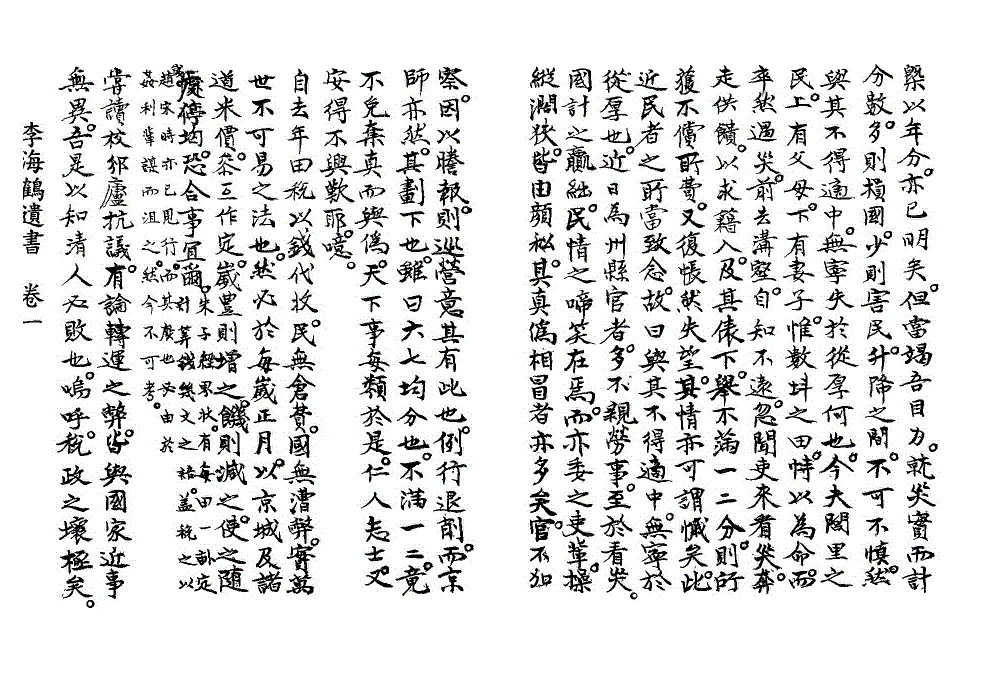 槩以年分。亦已明矣。但當竭吾目力。執災實而計
分數。多則損國。少則害民。升降之間。不可不愼。然
與其不得適中。無寧失於從厚何也。今夫閭里之
民。上有父母。下有妻子。惟數斗之田。恃以爲命。而
卒然遇災。前去溝壑。自知不遠。忽聞吏來看災。莽
走供饋。以求籍入。及其俵下。擧不滿一二分。則所
獲不償所費。又復悵然失望。其情亦可謂慽矣。此
近民者之所當致念。故曰與其不得適中。無寧於
從厚也。近日爲州縣官者。多不親勞事。至於看災。
國計之贏絀。民情之啼笑在焉。而亦委之吏輩。操
縱濶狹。皆由顔私。其眞僞相冒者亦多矣。官不加
察。因以謄報。則巡營意其有此也。例行退削。而京
師亦然。其劃下也。雖曰六七均分也。不滿一二。竟
不免棄眞而與僞。天下事每類於是。仁人志士。又
安得不興歎耶。噫。
自去年田稅以錢代收。民無倉費。國無漕弊。實萬
世不可易之法也。然必於每歲正月。以京城及諸
道米價。叅互作定。歲豊則增之。饑則減之。使之隨
處停均。恐合事宜爾。朱子經界狀。有每田一畝定計算錢幾文之語。盖稅之以
錢。趙宋時亦已見行。而其廢也必由於
姦利輩謨而沮之。然今不可考。
嘗讀校邠廬抗議。有論轉運之弊。皆與國家近事
無異。吾是以知淸人必敗也。嗚呼。稅政之壞極矣。
李海鶴遺書 卷一